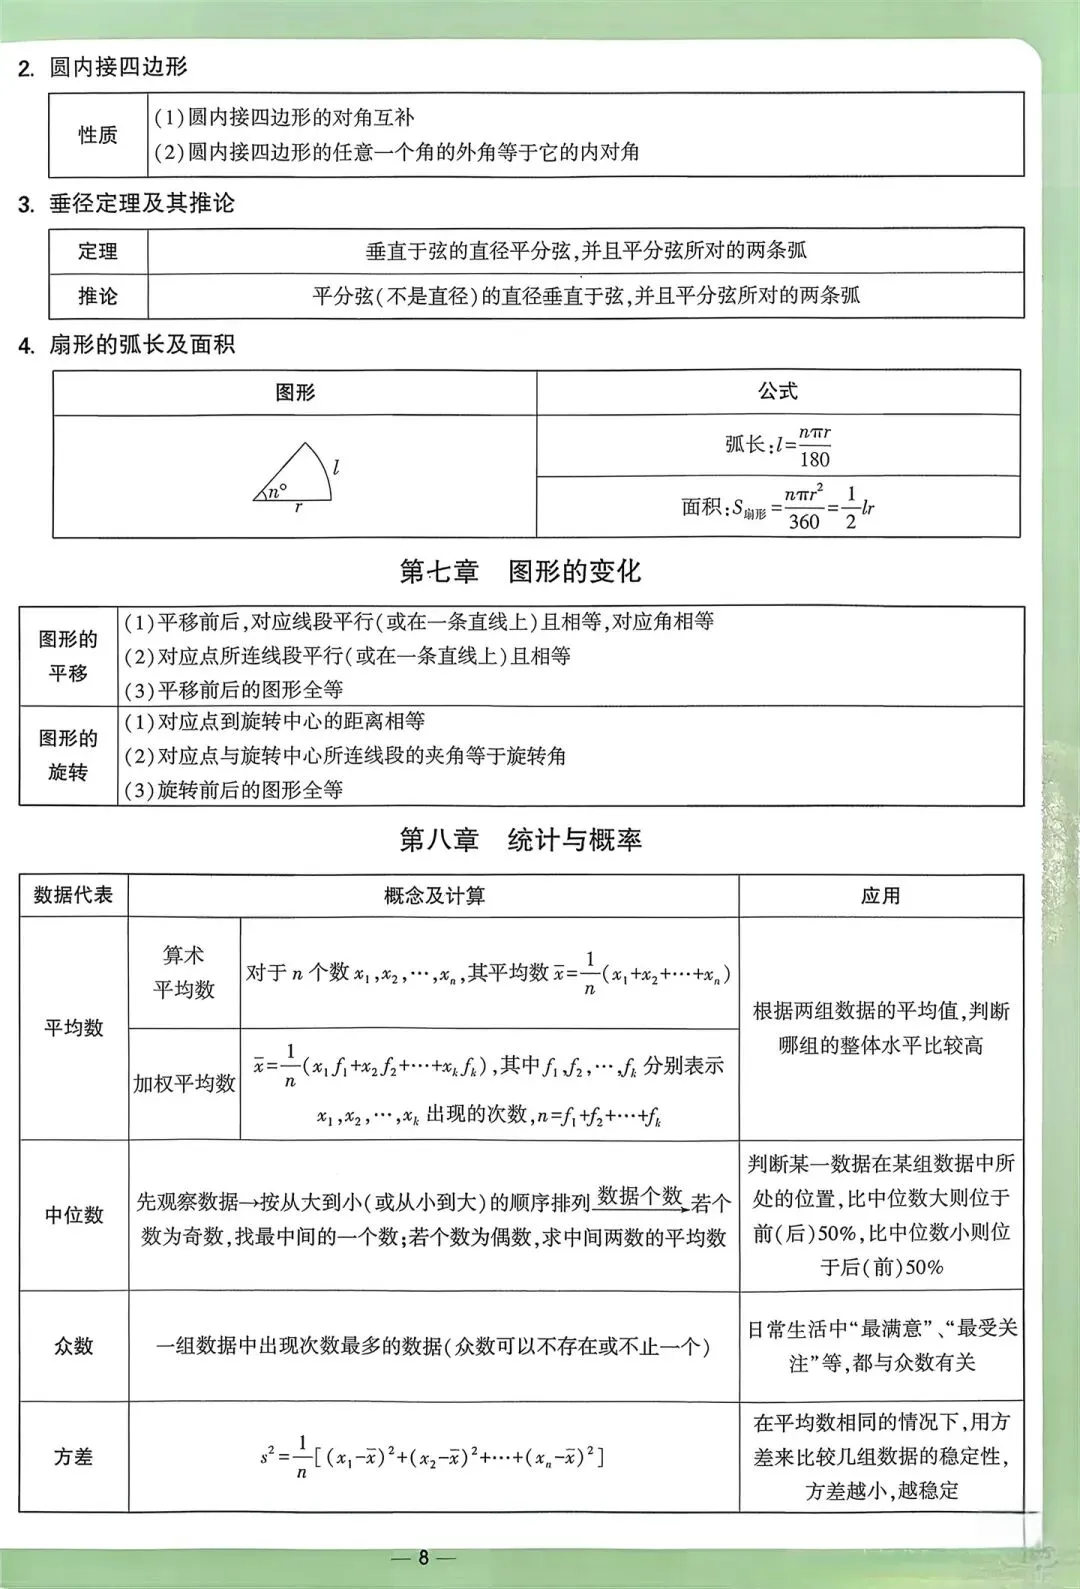 2. 圆内接四边形
性质
(1)圆内接四边形的对角互补
(2)圆内接四边形的任意一个角的外角等于它的内对角
3. 垂径定理及其推论
定理
垂直于弦的直径平分弦,并且平分弦所对的两条弧
推论
平分弦(不是直径)的直径垂直于弦,并且平分弦所对的两条弧
4. 扇形的弧长及面积
图形
公式
n°
r
l
弧长:l=nπr/180
面积:S扇形=nπr²/360=1/2lr
第七章 图形的变化
图形的
平移
(1)平移前后,对应线段平行(或在一条直线上)且相等,对应角相等
(2)对应点所连线段平行(或在一条直线上)且相等
(3)平移前后的图形全等
图形的
旋转
(1)对应点到旋转中心的距离相等
(2)对应点与旋转中心所连线段的夹角等于旋转角
(3)旋转前后的图形全等
第八章 统计与概率
数据代表
概念及计算
应用
平均数
算术
平均数
对于 n 个数 x₁,x₂,…,xₙ,其平均数 x̄=1/n(x₁+x₂+…+xₙ)
加权平均数
x̄=1/n(x₁f₁+x₂f₂+…+xₖfₖ),其中 f₁,f₂,…,fₖ 分别表示
x₁,x₂,…,xₖ 出现的次数,n=f₁+f₂+…+fₖ
根据两组数据的平均值,判断
哪组的整体水平比较高
中位数
先观察数据→按从大到小(或从小到大)的顺序排列 数据个数→若个
数为奇数,找最中间的一个数;若个数为偶数,求中间两数的平均数
判断某一数据在某组数据中所
处的位置,比中位数大则位于
前(后)50%,比中位数小则位
于后(前)50%
众数
一组数据中出现次数最多的数据(众数可以不存在或不止一个)
日常生活中“最满意”、“最受关
注”等,都与众数有关
方差
s²=1/n[(x₁-x̄)²+(x₂-x̄)²+…+(xₙ-x̄)²]
在平均数相同的情况下,用方
差来比较几组数据的稳定性,
方差越小,越稳定
— 8 —